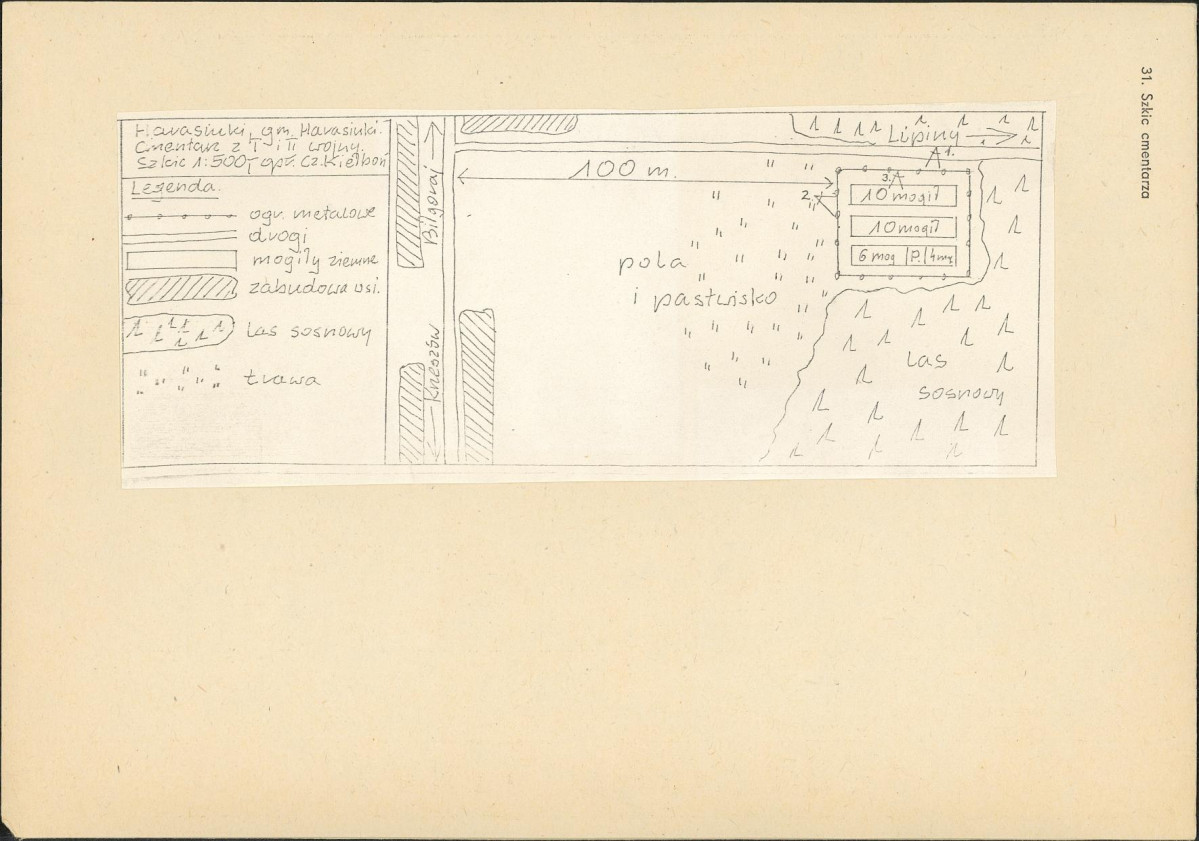 31. Szkic cmentarza
Harasiuki, gm. Harasiuki.
Cmentarz z I i II wojny.
Szkic 1:500, opr. Cz. Kiełboń
Legenda.
ogr. metalowe
drogi
mogiły ziemne
zabudowa wsi.
las sosnowy
trawa
Biłgoraj
Krzeszów
100 m.
Lipiny
1.
2.
3.
10 mogił
10 mogił
6 mog P. 4 mog
pola
i pastwisko
las
sosnowy